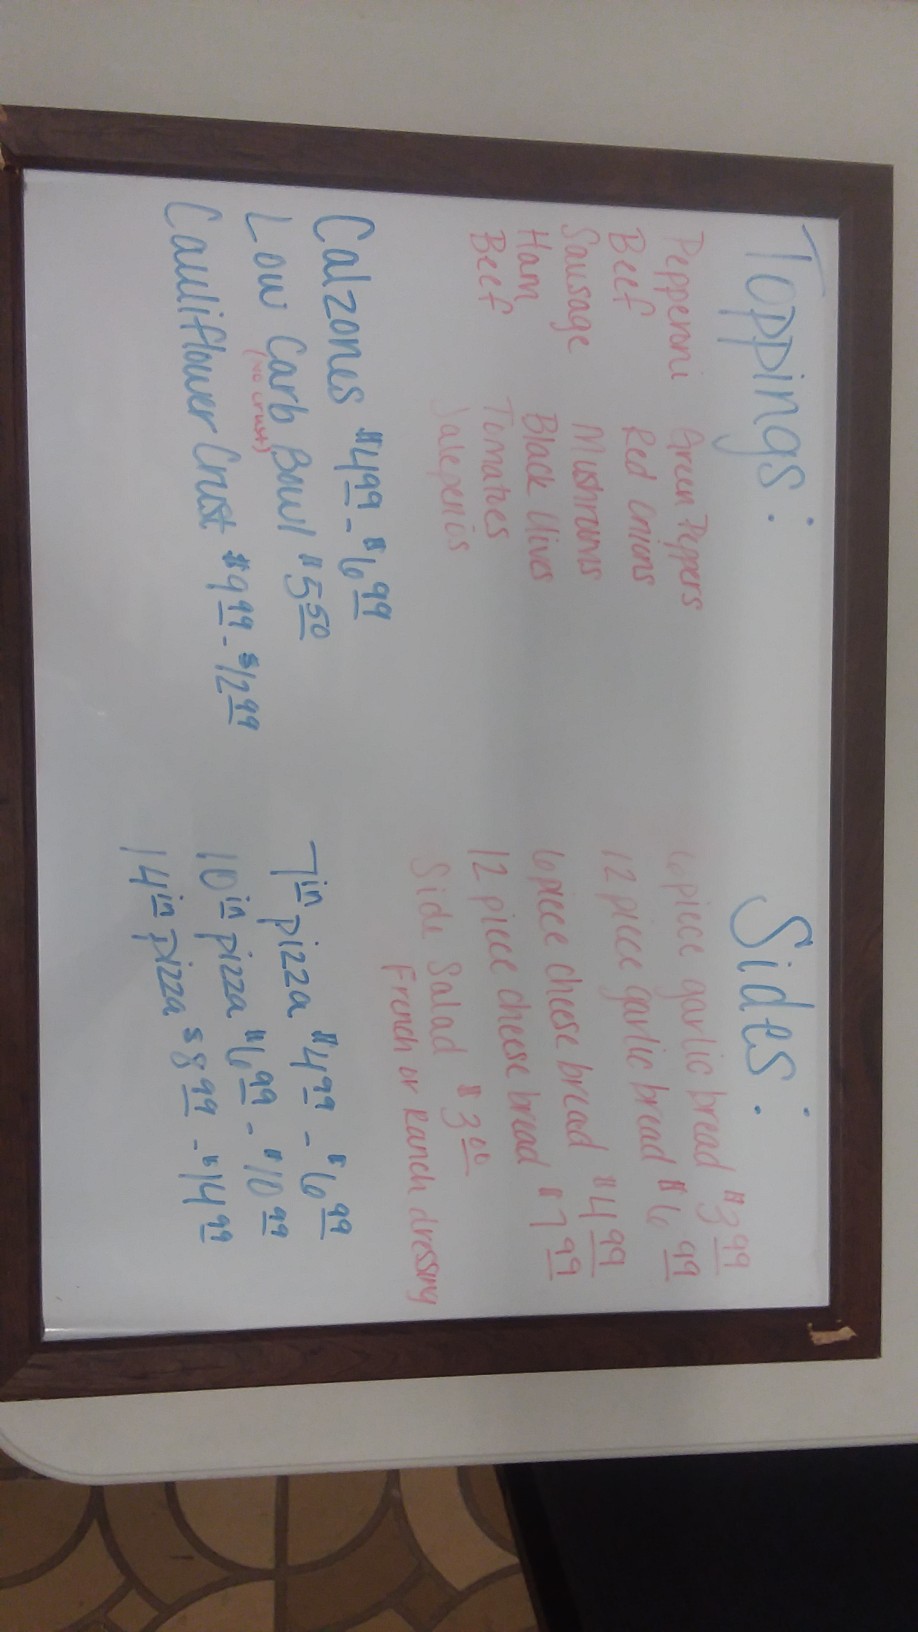 Toppings:
Pepperoni Green Peppers
Beef Red Onions
Sausage Mushrooms
Ham Black Olives
Beef Tomatoes
Jalepenos
Sides:
6 piece garlic bread $3.99
12 piece garlic bread $6.99
6 piece cheese bread $4.99
12 piece cheese bread $7.99
Side Salad $3.00
French or Ranch dressing
Calzones $4.99 - $6.99
Low Carb Bowl $5.50
(no crust)
Cauliflower Crust $9.99 - $12.99
7in pizza $4.99 - $6.99
10in pizza $6.99 - $10.99
14in pizza $8.99 - $14.99